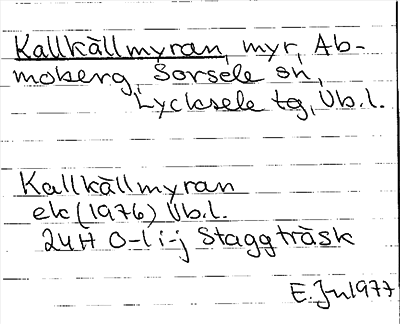 Kallkällmyran, myr, Ab-
moberg, Sorsele sn,
Lycksele tg, Vb.l.
Kallkällmyran
ek (1976) Vb.l.
24H 0-1 i-j Staggträsk
E. Jul 1977